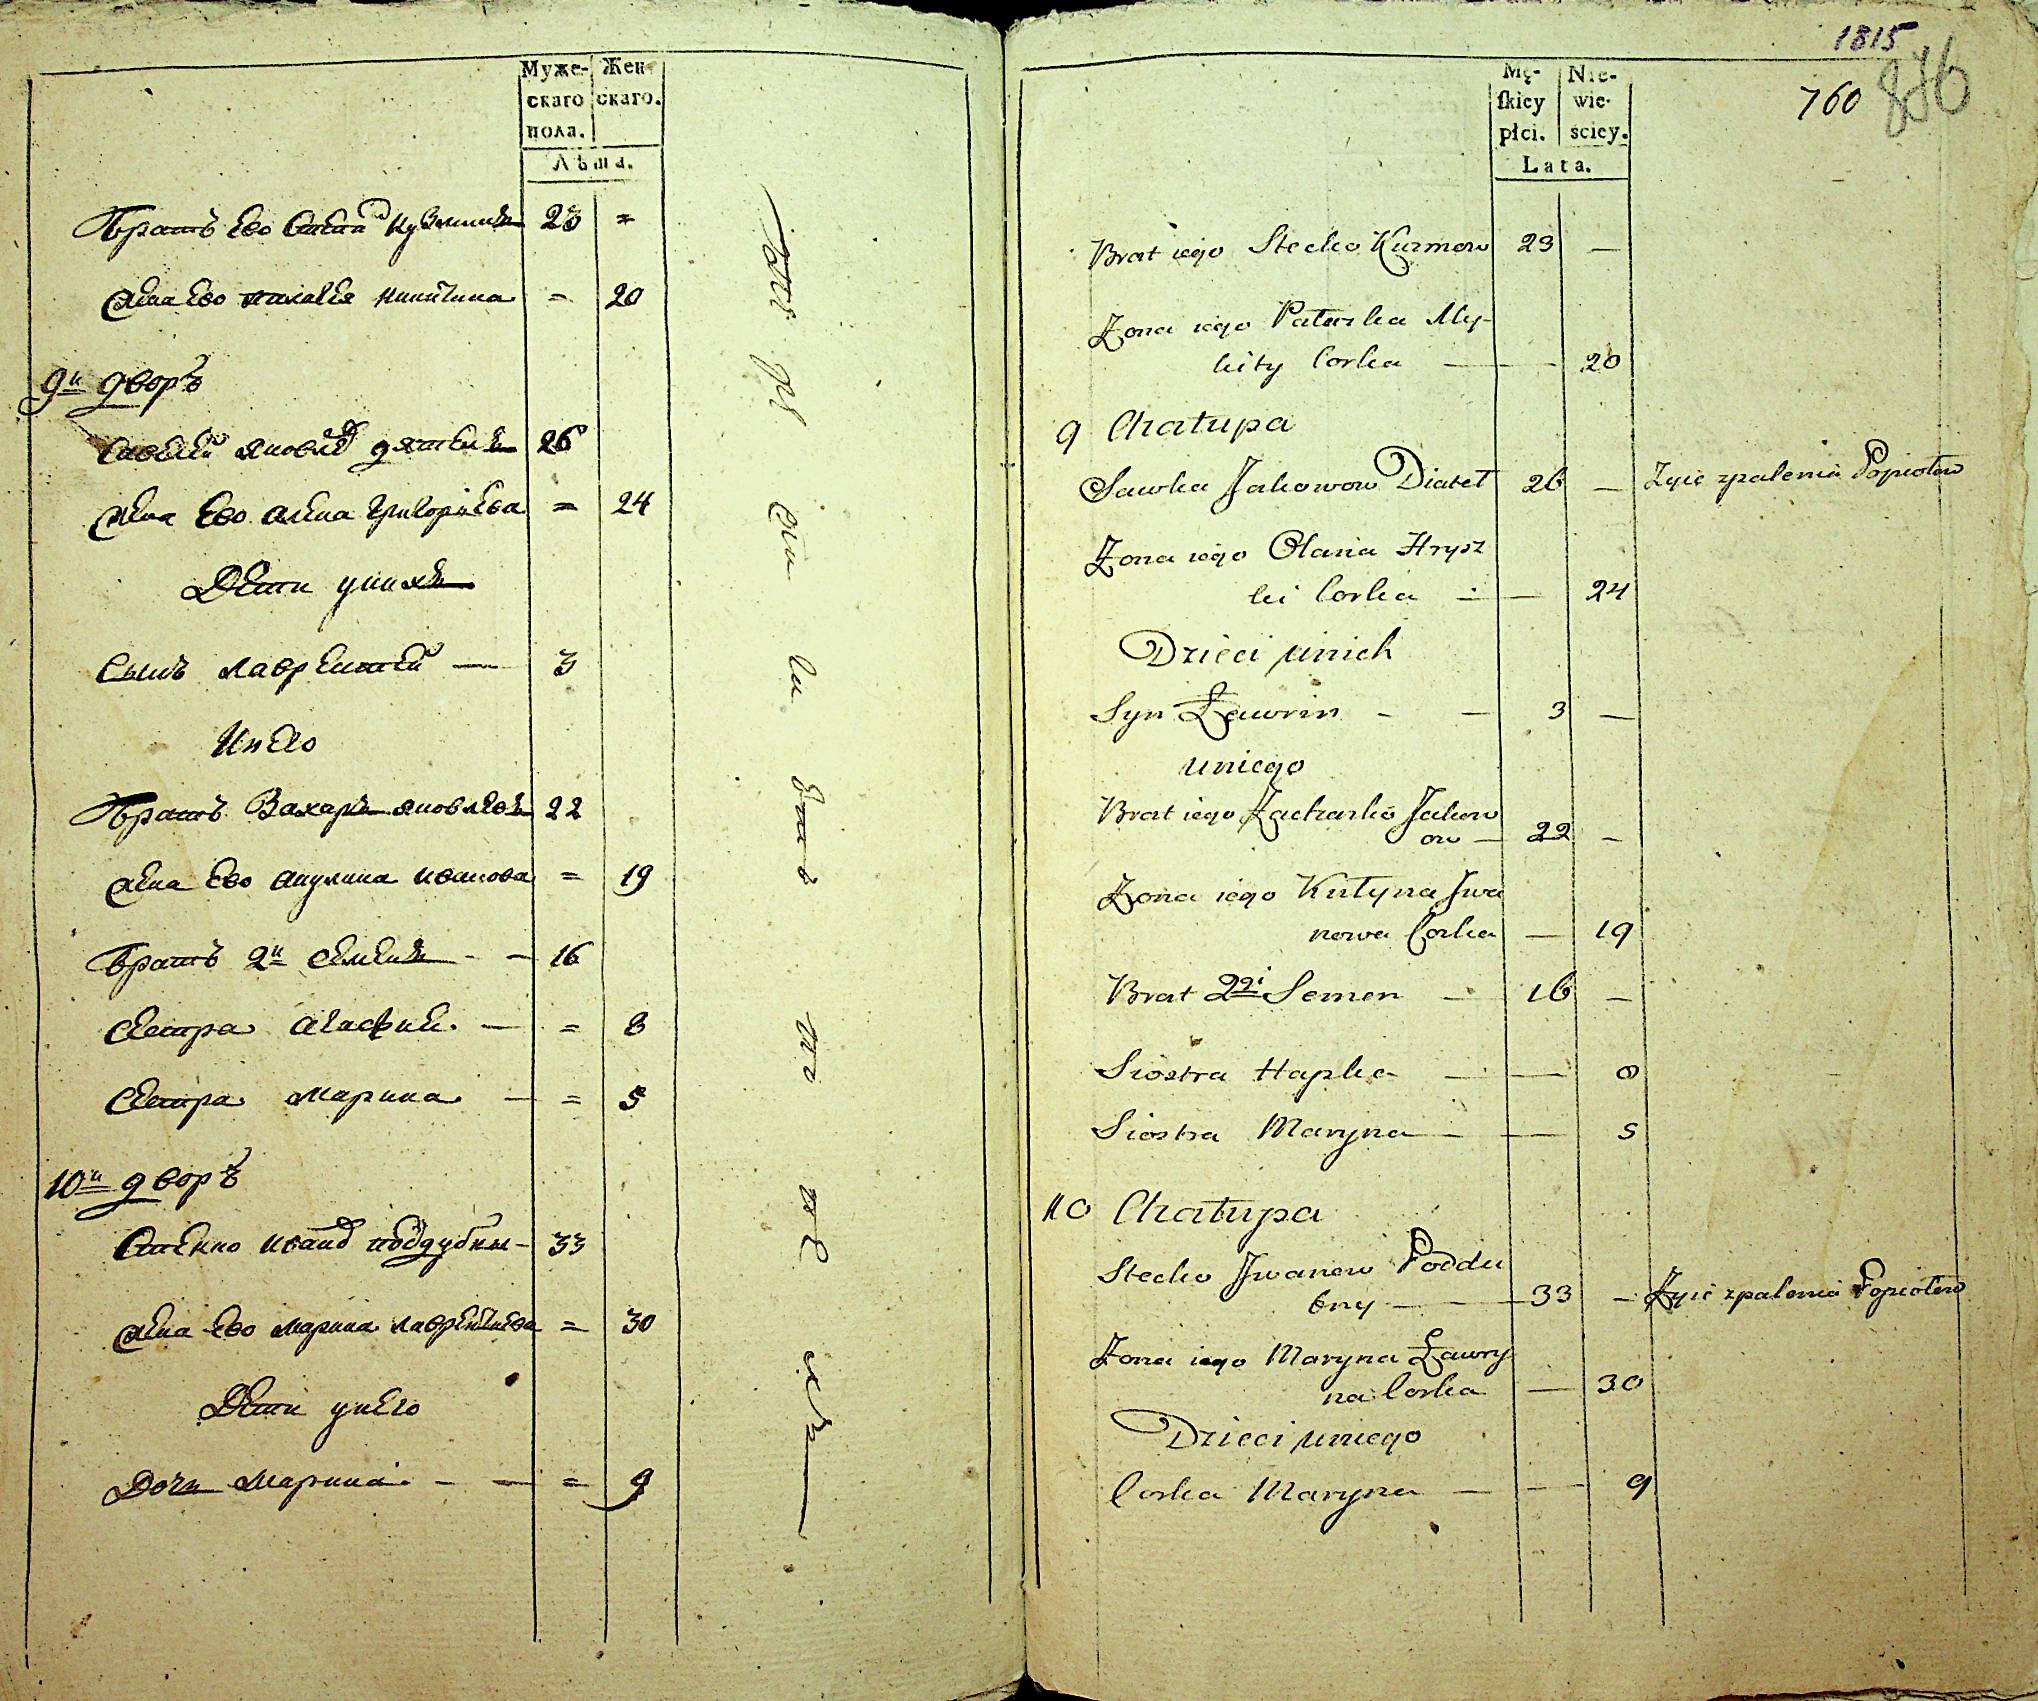 Муже-
скаго
пола.
Жен-
скаго.
Лѣта.
Братъ ево Степа Кузминъ 23 =
Жена ево Палагея Никитина = 20
9й дворъ
Савелей Яковлев Дятелъ 26
Жена ево Алена Григорьева = 24
Дети у нихъ
Сынъ Лаврентей — 3
У него
Братъ Захаръ Яковлевъ 22
Жена ево Акулина Иванова = 19
Братъ 2й Семенъ - — 16
Сестра Агафия — = 8
Сестра Марина — = 5
10й дворъ
Степко Иванов Поддубны — 33
Жена ево Марина Лаврентиева = 30
Дети у него
Дочь Марина - — = 9
1815
760
Mę-
skiey
płci.
Nie-
wie-
sciey.
Lata.
Brat iego Stecko Kuzmow 23 —
Zona iego Pałaszka My-
kity Corka — — 20
9 Chałupa
Sawka Jakowow Diateł 26 — Zyie zpalenia Popiołow
Zona iego Ołana Hrysz
ki Corka — — 24
Dzieci unich
Syn Ławrin - — 3 —
uniego
Brat iego Zacharko Jakow
ow — 22 —
Zona iego Kułyna Jwa
nowa Corka — 19
Brat 2gi Semen — 16 —
Siostra Hapka — — 8
Siostra Maryna — — 5
10 Chałupa
Stecko Jwanow Poddu
bny — — 33 — Zyie zpalenia Popiołow
Zona iego Maryna Ławry
na Corka — 30
Dzieci uniego
Corka Maryna — — 9